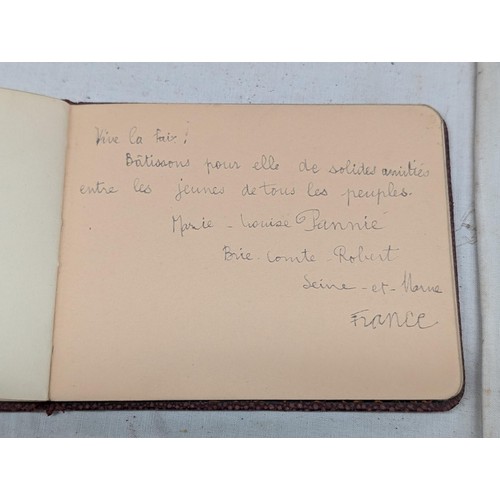 Vive la Paix!
Bâtissons pour elle de solides amitiés
entre les jeunes de tous les peuples.
Marie-Louise Pannié
Brie-Comte-Robert
Seine-et-Marne
FRANCE